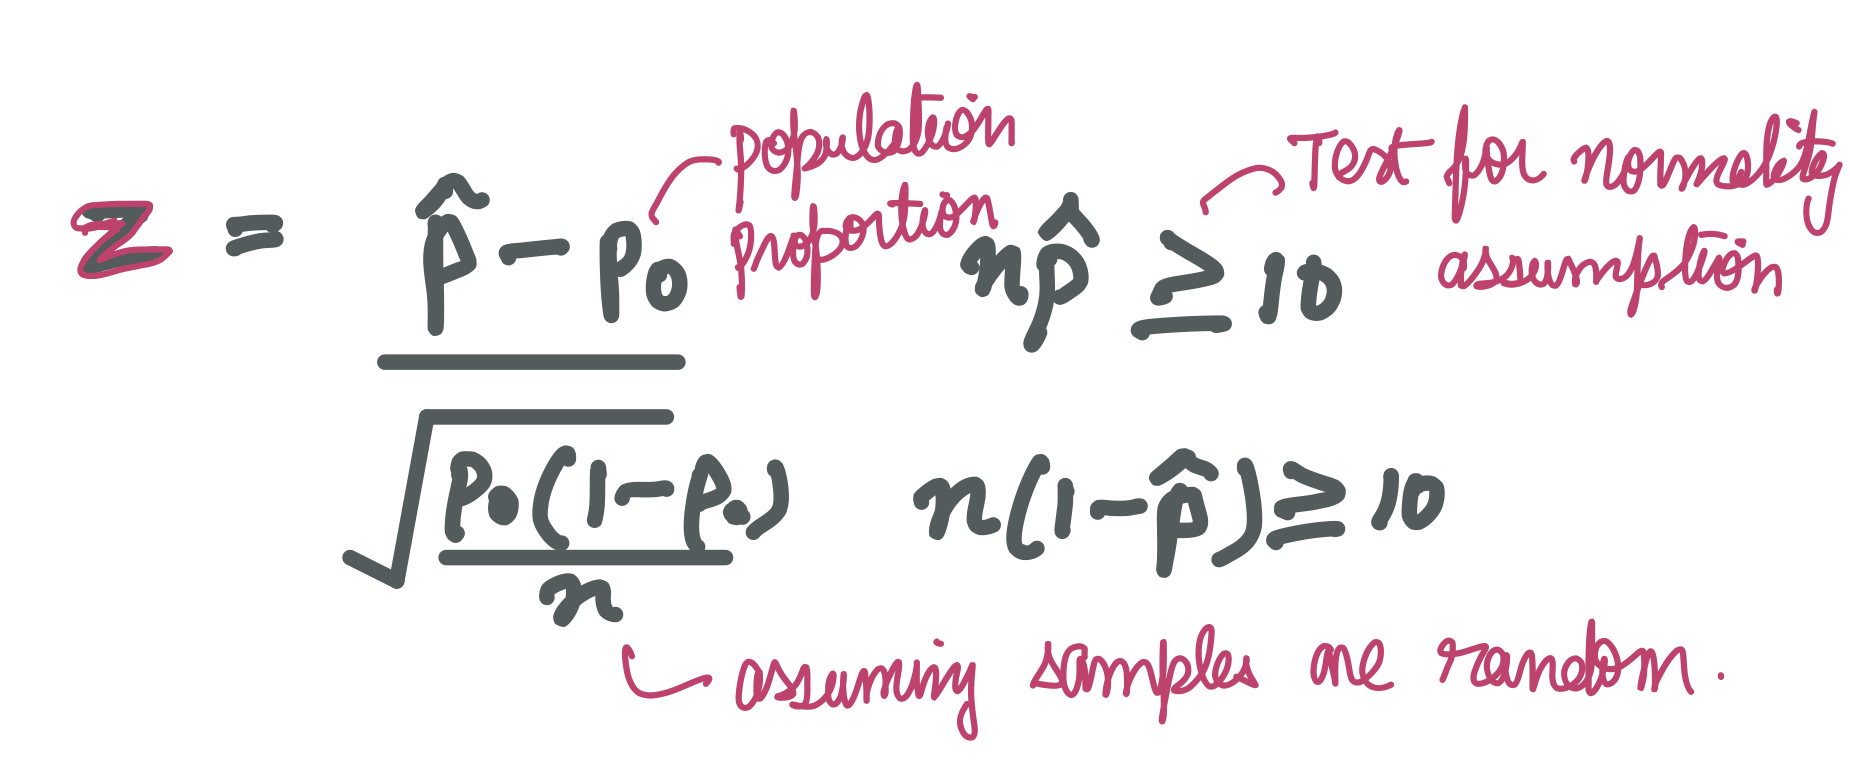 z = p̂ - p₀ / √(p₀(1-p₀)/n)
population
proportion
np̂ ≥ 10
Test for normality
assumption
n(1-p̂) ≥ 10
assuming samples are random.